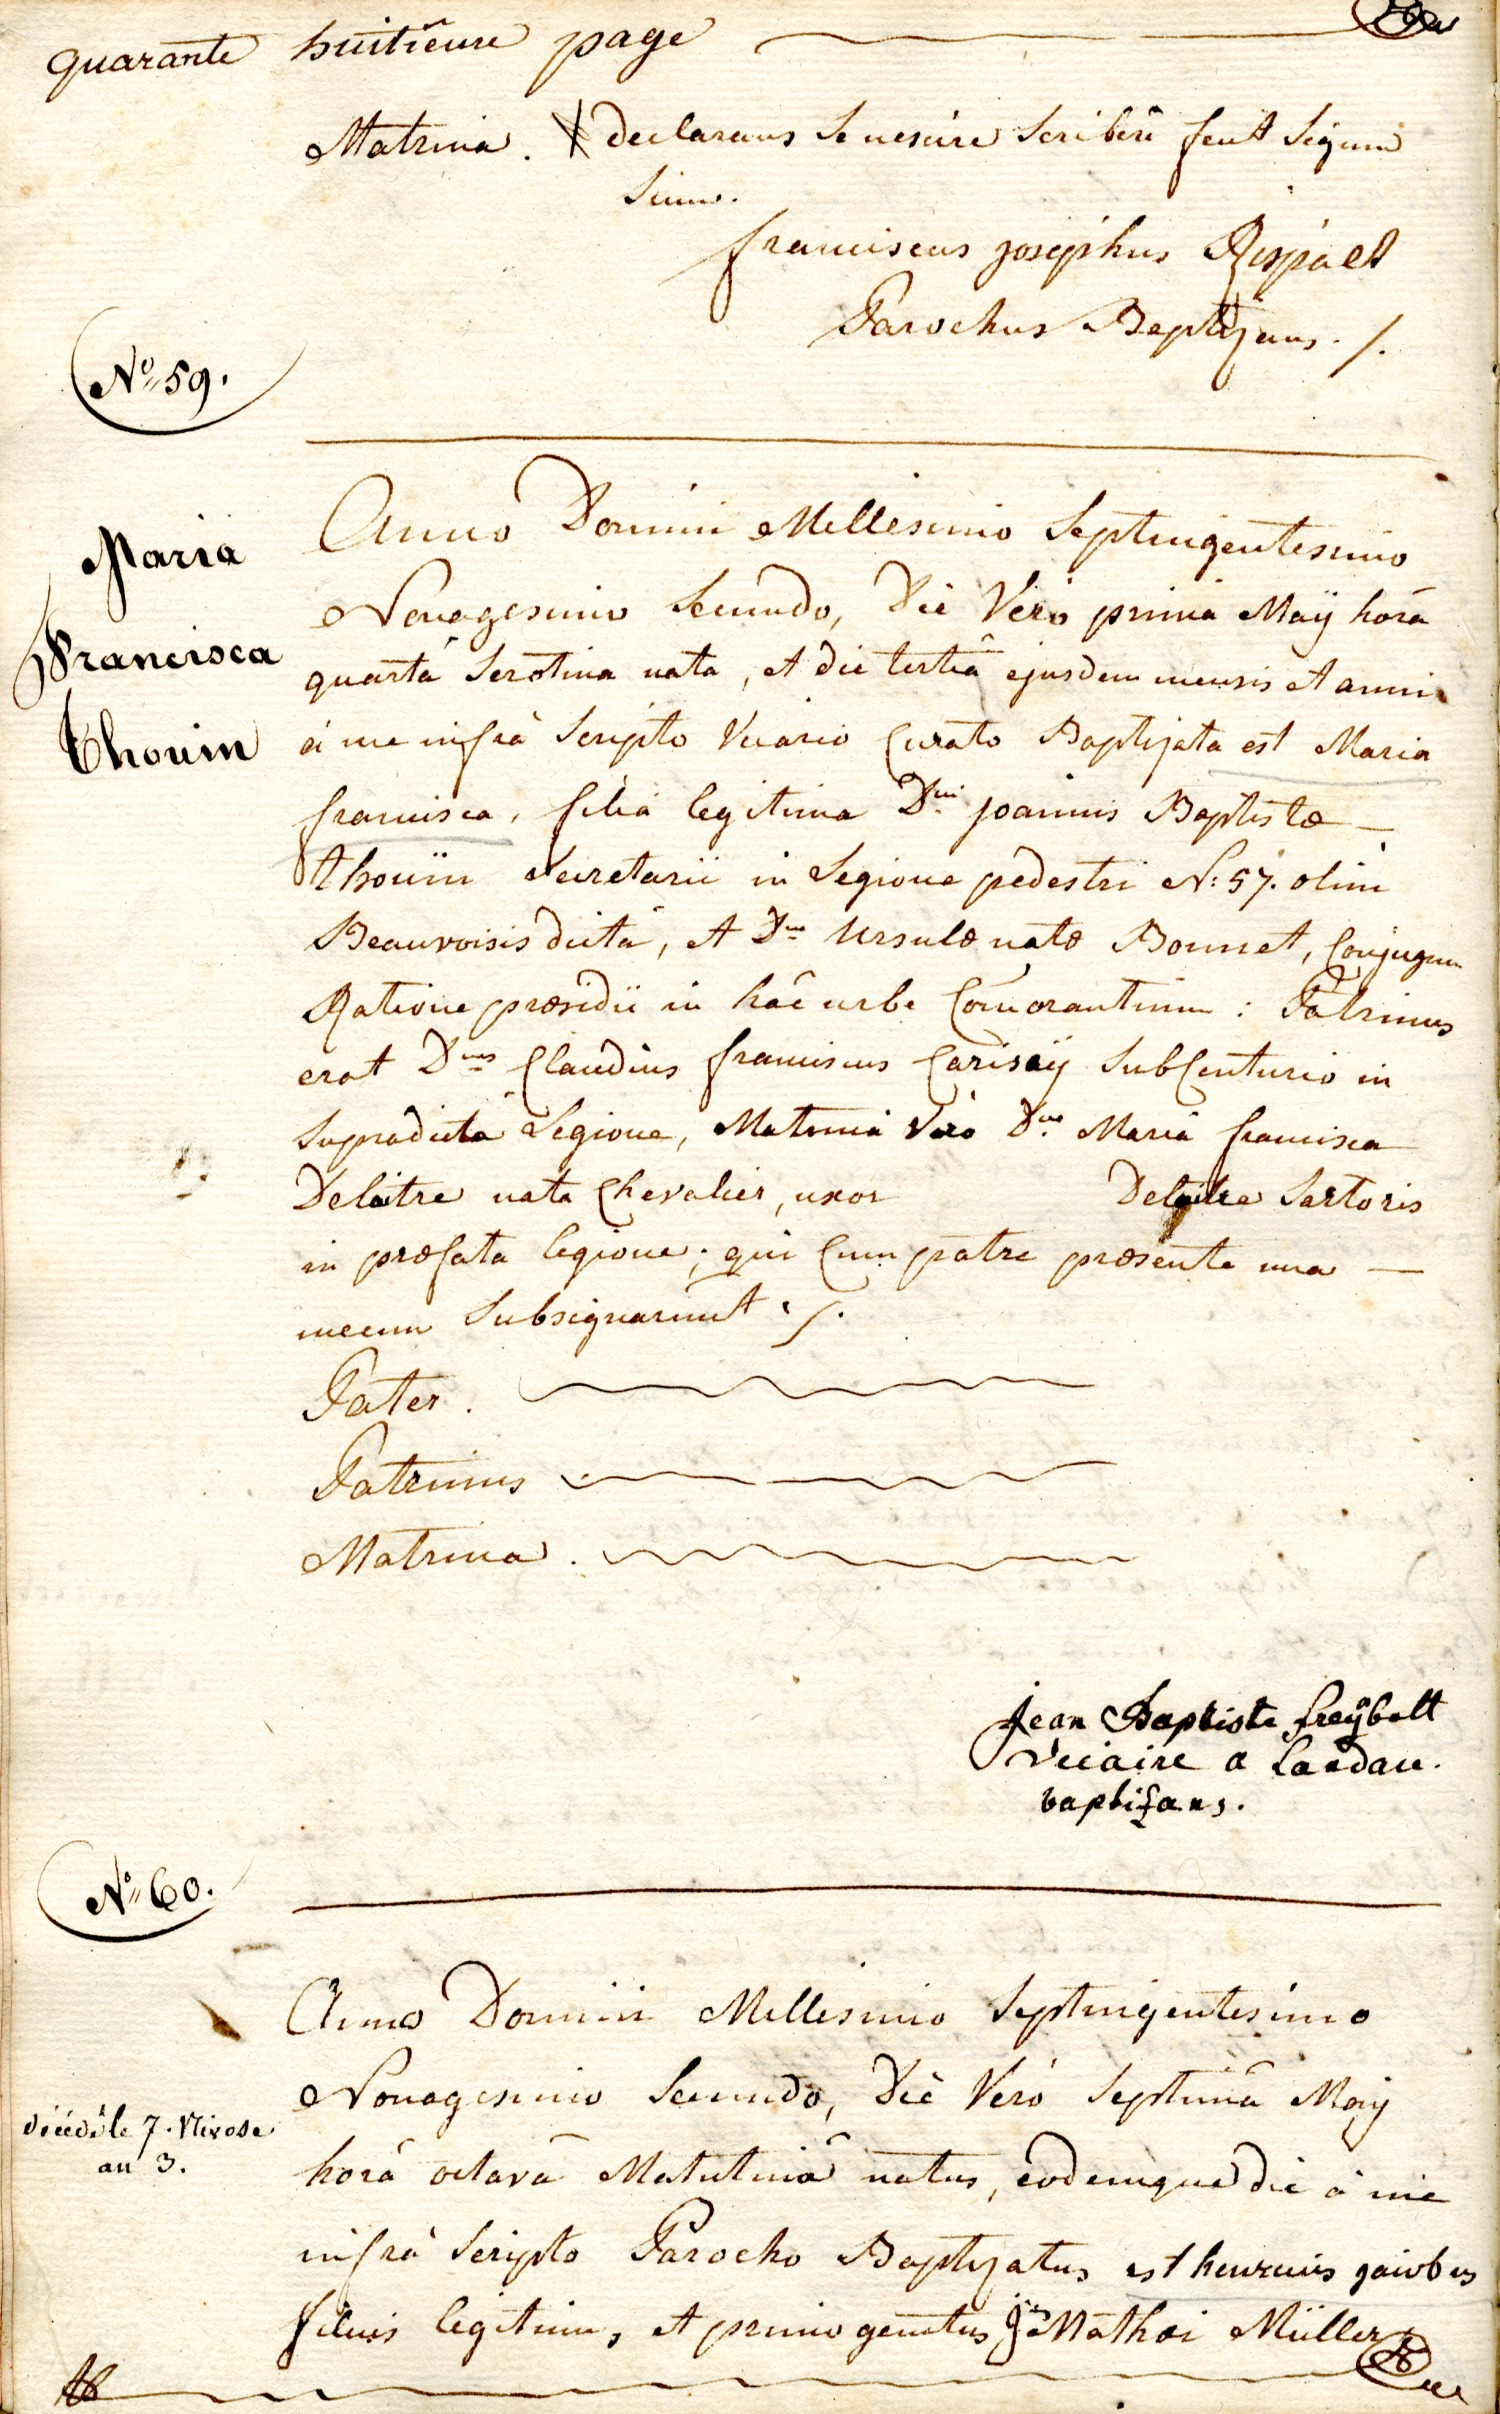 quarante huitieme page
Matrina. declarans se nescire scribere fecit signum
suum.
franciscus josephus Rispalt
Parochus Baptizans ./.
No 59.
Maria
Francisca
Thouin
Anno Domini Millesimo Septingentesimo
Nonagesimo Secundo, Die Vero prima Maÿ horâ
quartâ Serotina nata, et die tertiâ ejusdem mensis et anni
à me infrà Scripto Vicario Curato Baptizata est Maria
francisca, filia legitima Dni joannis Baptistæ
thouin Secretarii in Legione pedestri N: 57. olim
Beauvoisis dictâ, et Dnæ Ursulæ natæ Bonnet, Conjugum
Ratione præsidii in hâc urbe Com̄orantium : Patrinus
erat Dnus Claudius franciscus Carisaÿ SubCenturio in
Supradicta Legione, Matrina Vero Dna Maria francisca
Delaitre nata Chevalier, uxor Delaitre Sartoris
in præfata legione; qui Cum patre præsente una
mecum Subsignarunt ./.
Pater.
Patrinus
Matrina.
Jean Baptiste freÿbolt
Vicaire a Landau.
baptizans.
No 60.
Anno Domini Millesimo Septingentesimo
Nonagesimo Secundo, Die Verò Septimâ Maÿ
décédé le 7. Nivose
an 3.
horâ octavâ Matutinâ natus, eodemque die à me
infrà Scripto Parocho Baptizatus est henricus jacobus
filius legitimus, et primo genitus Mathæi Müller